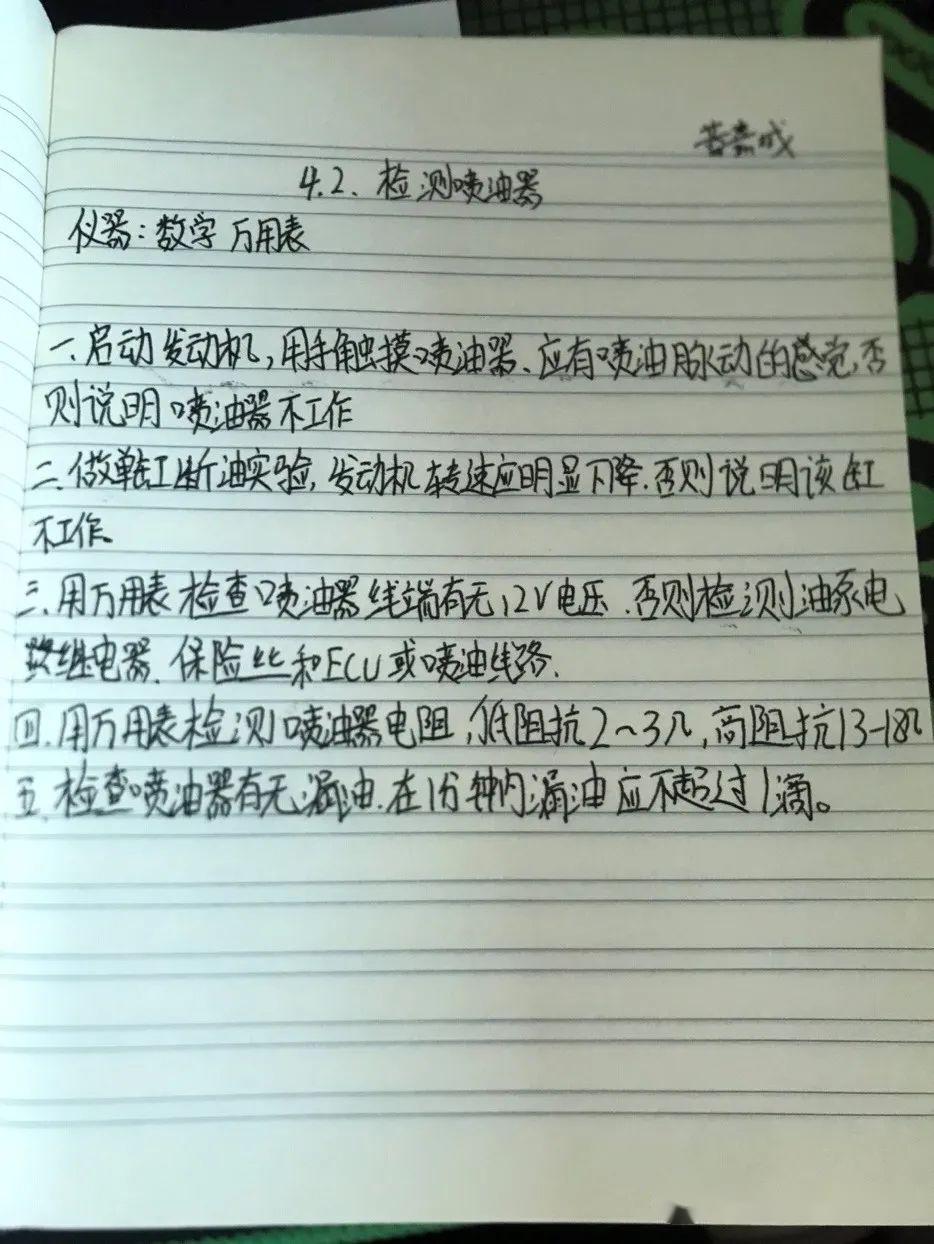 4.2、检测喷油器
仪器：数字万用表
一、启动发动机，用手触摸喷油器、应有喷油脉动的感觉，否
则说明喷油器不工作
二、做单缸断油实验，发动机转速应明显下降.否则说明该缸
不工作.
三、用万用表检查喷油器线端有无12V电压.否则检测油泵电
路继电器.保险丝和ECU或喷油线路.
四.用万用表检测喷油器电阻，低阻抗2～3Ω，高阻抗13-18Ω
五.检查喷油器有无漏油.在1分钟内漏油应不超过1滴。